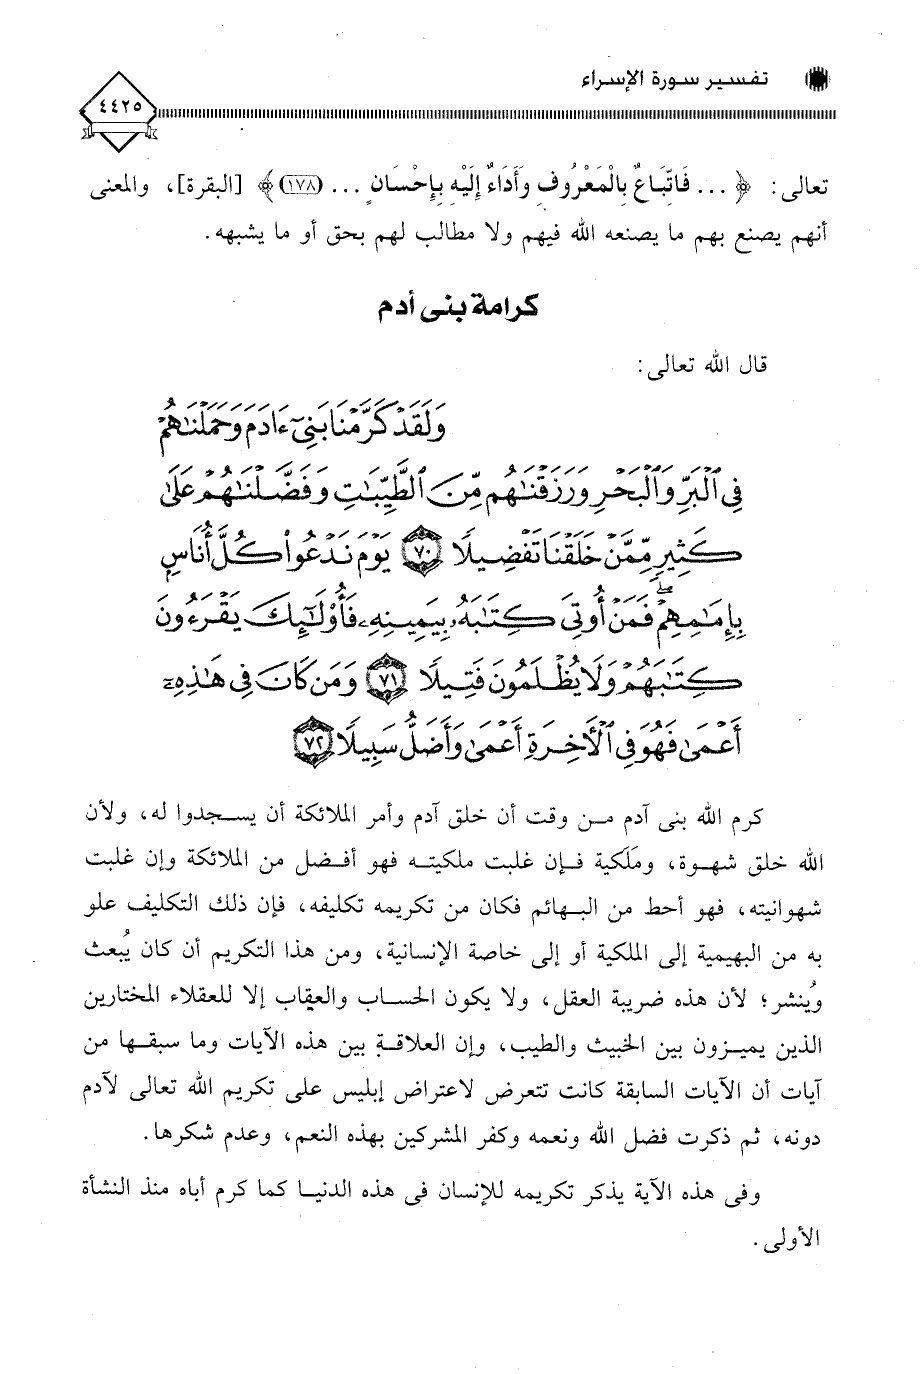 تفسير سورة الإسراء
٤٤٢٥
تعالى: ﴿ ... فَاتِّبَاعٌ بِالْمَعْرُوفِ وَأَدَاءٌ إِلَيْهِ بِإِحْسَانٍ ... (١٧٨)﴾ [البقرة]، والمعنى
أنهم يصنع بهم ما يصنعه الله فيهم ولا مطالب لهم بحق أو ما يشبهه.
كرامة بنى أدم
قال الله تعالى:
وَلَقَدْ كَرَّمْنَا بَنِىٓ ءَادَمَ وَحَمَلْنَٰهُمْ
فِى ٱلْبَرِّ وَٱلْبَحْرِ وَرَزَقْنَٰهُم مِّنَ ٱلطَّيِّبَٰتِ وَفَضَّلْنَٰهُمْ عَلَىٰ
كَثِيرٍ مِّمَّنْ خَلَقْنَا تَفْضِيلًا ٧٠ يَوْمَ نَدْعُوا۟ كُلَّ أُنَاسٍۭ
بِإِمَٰمِهِمْ ۖ فَمَنْ أُوتِىَ كِتَٰبَهُۥ بِيَمِينِهِۦ فَأُو۟لَٰٓئِكَ يَقْرَءُونَ
كِتَٰبَهُمْ وَلَا يُظْلَمُونَ فَتِيلًا ٧١ وَمَن كَانَ فِى هَٰذِهِۦٓ
أَعْمَىٰ فَهُوَ فِى ٱلْأَخِرَةِ أَعْمَىٰ وَأَضَلُّ سَبِيلًا ٧٢
كرم الله بنى آدم مــن وقت أن خلق آدم وأمر الملائكة أن يســجدوا له، ولأن
الله خلق شهــوة، وملَكية فــإن غلبت ملكيتــه فهو أفــضل من الملائكة وإن غلبت
شهوانيته، فهو أحط من البــهائم فكان من تكريمه تكليفه، فإن ذلك التكليف علو
به من البهيمية إلى الملكية أو إلى خاصة الإنسانية، ومن هذا التكريم أن كان يُبعث
ويُنشر؛ لأن هذه ضريبة العقل، ولا يكون الحســاب والعقاب إلا للعقلاء المختارين
الذين يميــزون بين الخبيث والطيب، وإن العلاقــة بين هذه الآيات وما سبقــها من
آيات أن الآيات السابقة كانت تتعرض لاعتراض إبليس على تكريم الله تعالى لآدم
دونه، ثم ذكرت فضل الله ونعمه وكفر المشركين بهذه النعم، وعدم شكرها.
وفى هذه الآية يذكر تكريمه للإنسان فى هذه الدنيــا كما كرم أباه منذ النشأة
الأولى.